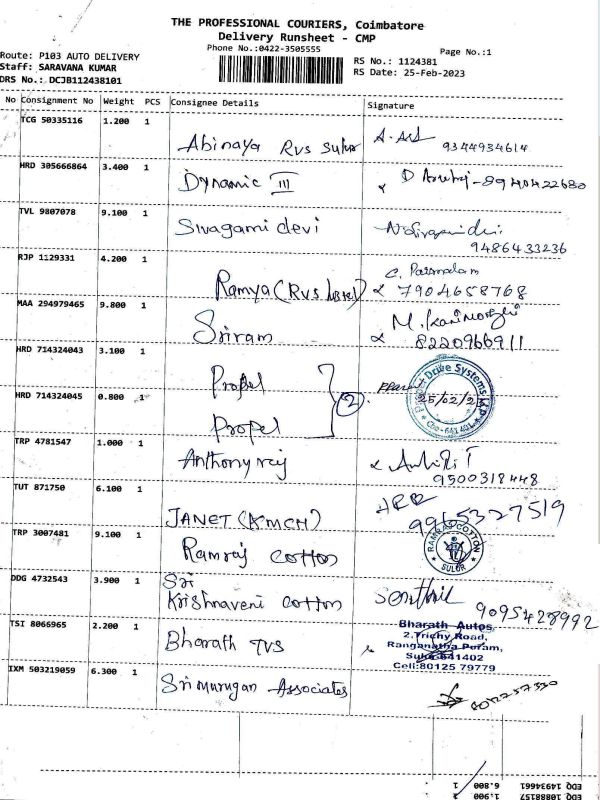 THE PROFESSIONAL COURIERS, Coimbatore
Delivery Runsheet - CMP
Phone No.:0422-3505555
Page No.:1
Route: P103 AUTO DELIVERY
Staff: SARAVANA KUMAR
DRS No.: DCJB112438101
RS No.: 1124381
RS Date: 25-Feb-2023
No Consignment No Weight PCS Consignee Details Signature
TCG 50335116 1.200 1 Abinaya RVS Sulur 9344934614
HRD 305666864 3.400 1 Dynamic III 8940422680
TVL 9807078 9.100 1 Sivagami devi 9486433236
RJP 1129331 4.200 1 Ramya (RVS hostel) 7904658768
MAA 294979465 9.800 1 Sriram 8220966911
HRD 714324043 3.100 1 Propel
HRD 714324045 0.800 1 Propel (2) Drive Systems 25/02/2
TRP 4781547 1.000 1 Anthonyraj 9500318448
TUT 871750 6.100 1 JANET (KMCH) 9915327519
TRP 3007481 9.100 1 Ramraj Cotton RAMRAJ COTTON SULUR
DDG 4732543 3.900 1 Sri Krishnaveni Cotton Senthil 9095428992
TSI 8066965 2.200 1 Bharath TVS
Bharath Autos
2,Trichy Road,
Ranganatha Puram,
Sulur-641402
Cell:80125 79779
IXM 503219059 6.300 1 Sri Murugan Associates
EDQ 10888157 1.900 1
EDQ 14934661 6.800 1